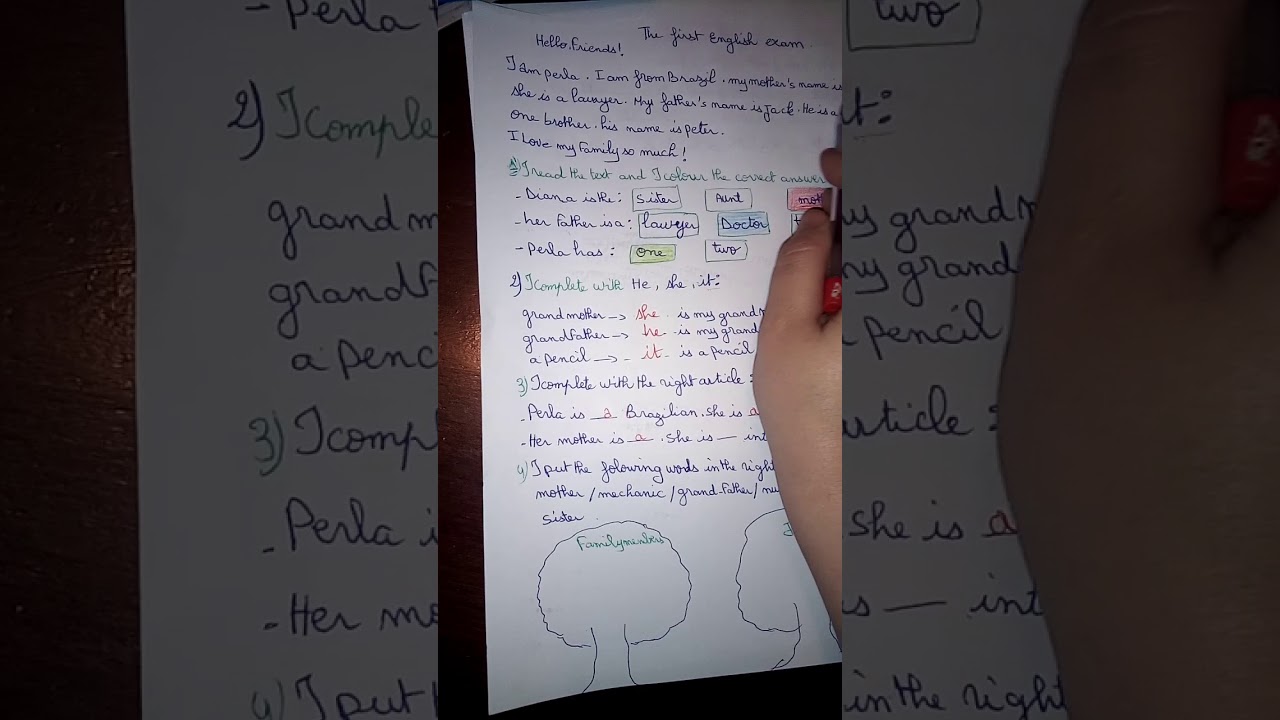 The first English exam.
Hello, Friends!
I am perla. I am from Brazil. my mother's name is
she is a lawyer. My father's name is Jack. He is a
one brother. his name is peter.
I Love my Family so much!
1) I read the text and I colour the correct answer
- Diana is the: Sister Aunt
- her Father is a: lawyer Doctor
- Perla has: One two
2) I complete with He, she, it:
grandmother → she is my grand
grandfather → he is my grand
a pencil → it is a pencil
3) I complete with the right article:
- Perla is a Brazilian. She is a
- Her mother is a. She is — int
4) I put the folowing words in the right
mother / mechanic / grand-father /
sister
Family members